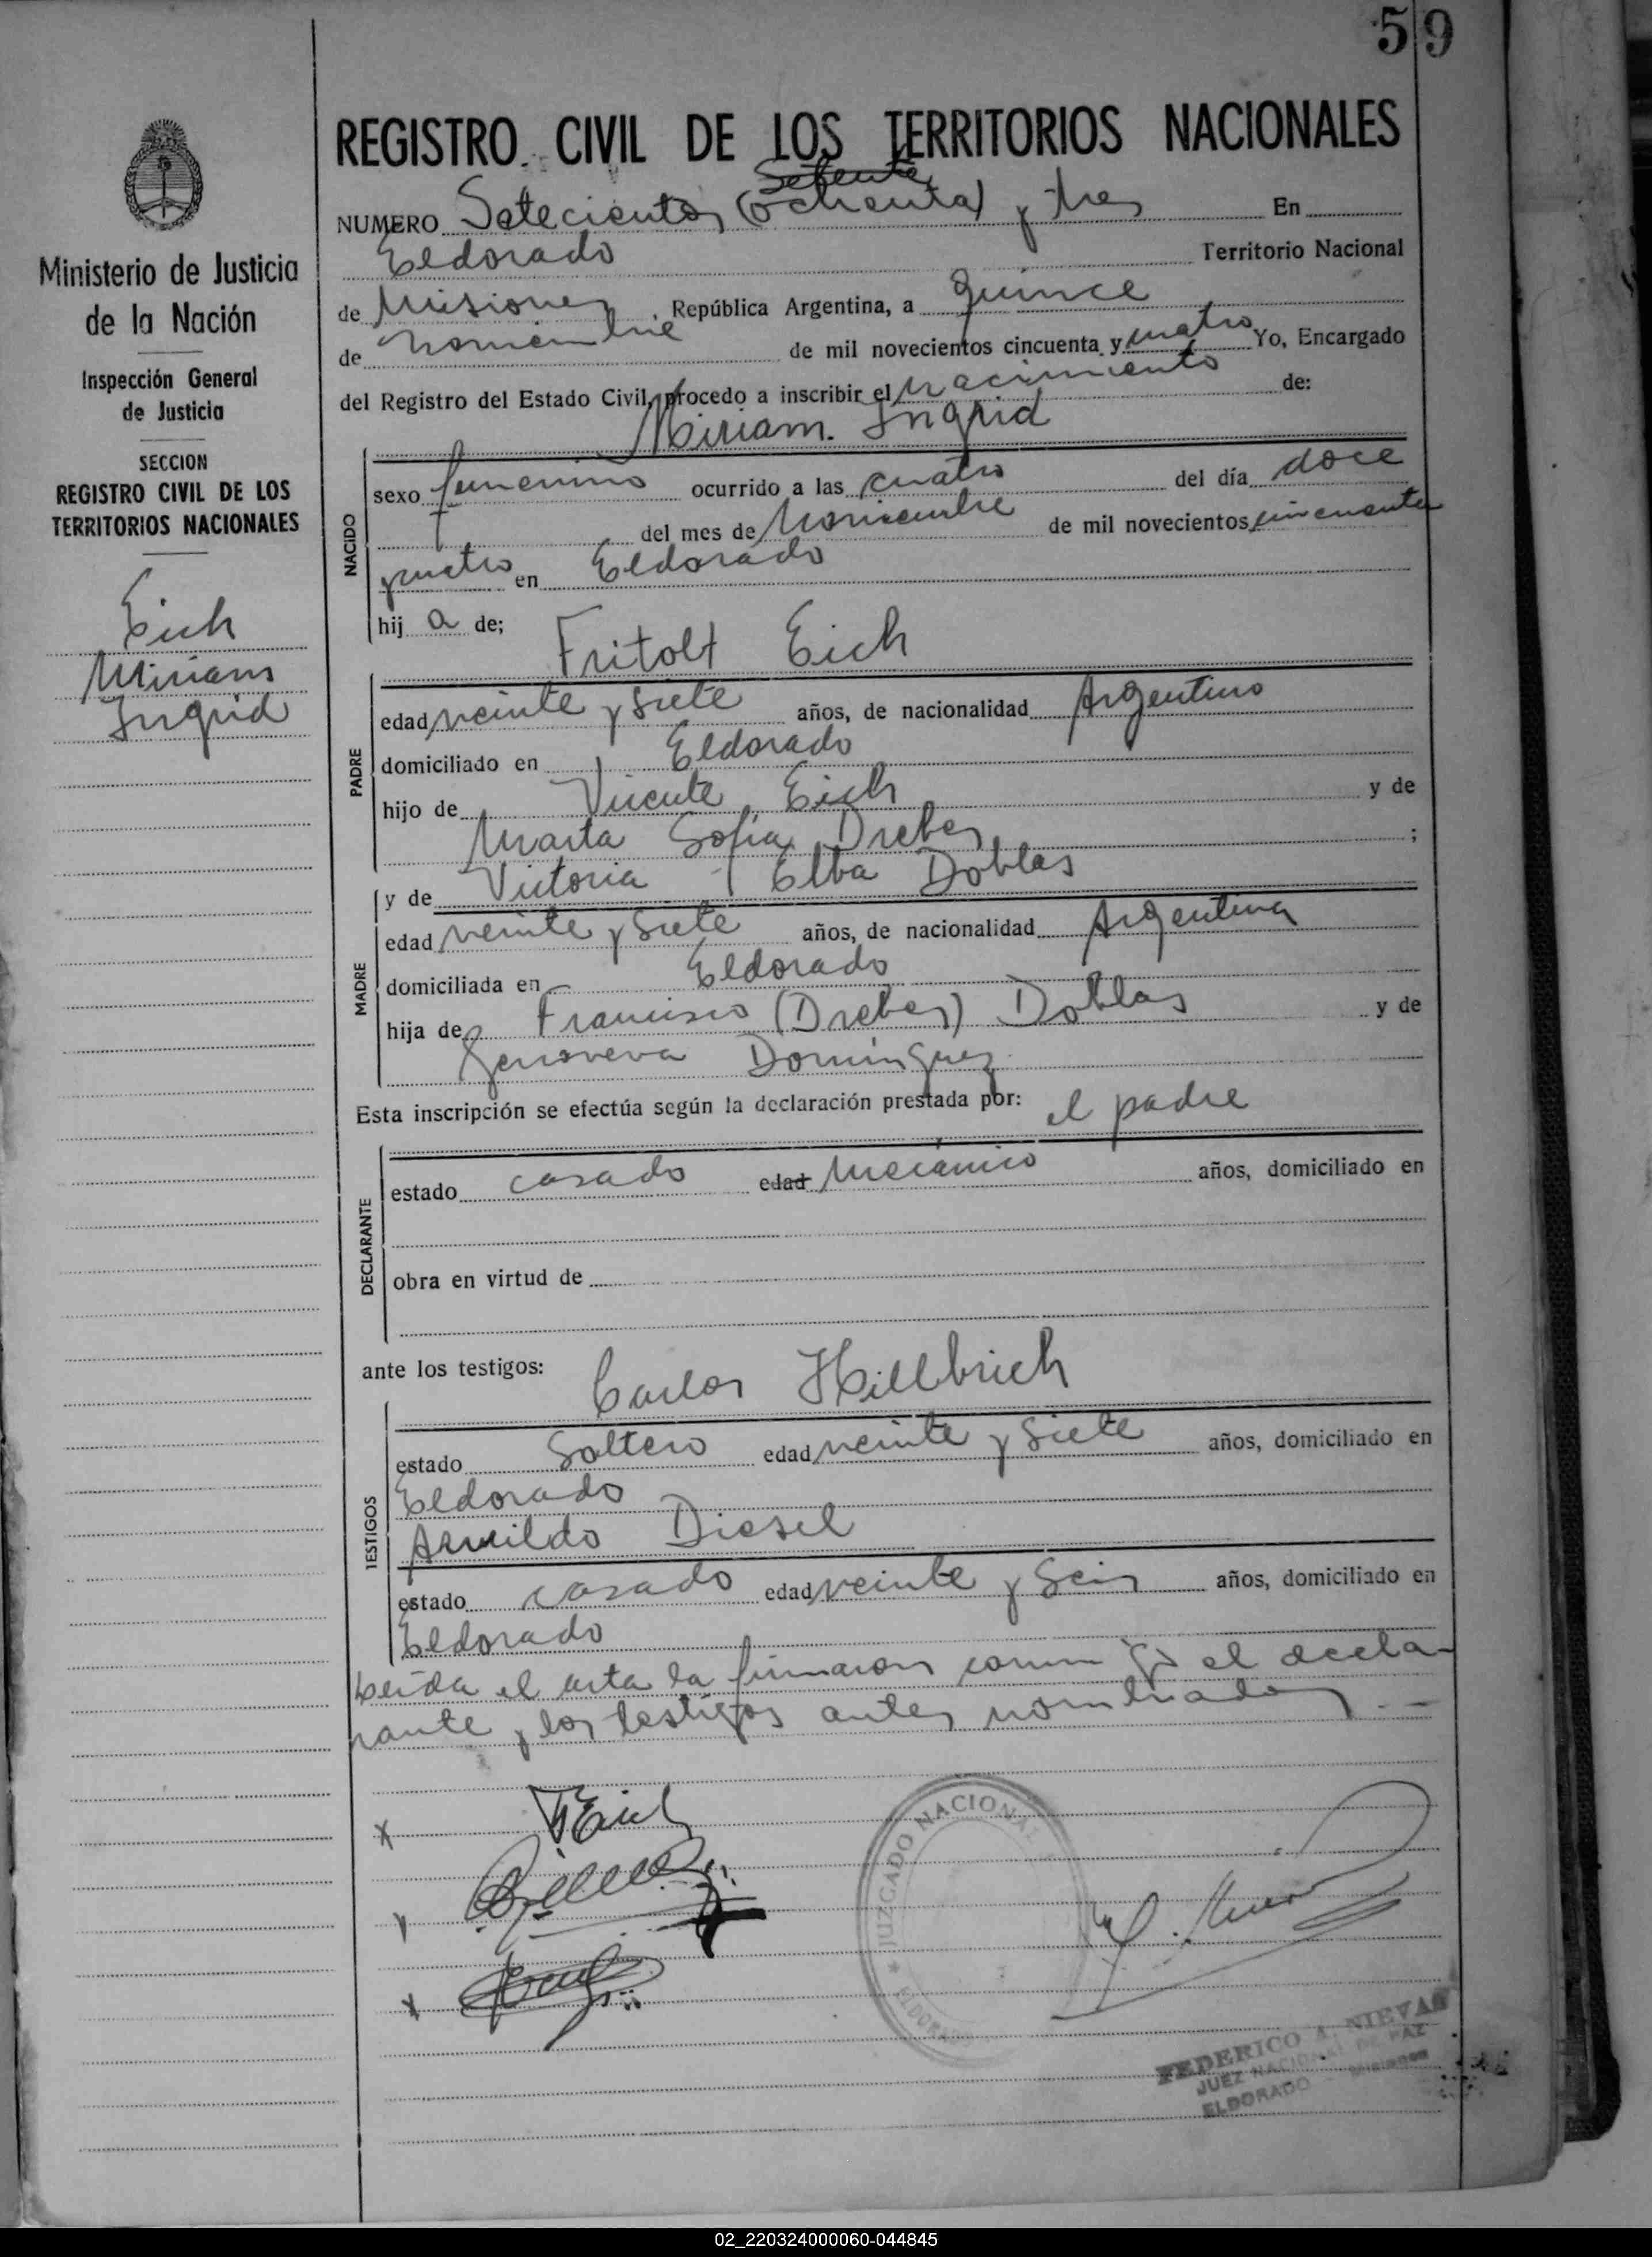 59
REGISTRO CIVIL DE LOS TERRITORIOS NACIONALES
Setenta
NUMERO Setecientos (ochenta) y tres En
Eldorado Territorio Nacional
de Misiones República Argentina, a quince
de noviembre de mil novecientos cincuenta y cuatro Yo, Encargado
del Registro del Estado Civil, procedo a inscribir el nacimiento de:
Miriam Ingrid
Ministerio de Justicia
de la Nación
Inspección General
de Justicia
SECCION
REGISTRO CIVIL DE LOS
TERRITORIOS NACIONALES
Eich
Miriam
Ingrid
NACIDO
sexo femenino ocurrido a las cuatro del día doce
del mes de Noviembre de mil novecientos cincuenta
y cuatro en Eldorado
hij a de;
Fritolt Eich
PADRE
edad veinte y siete años, de nacionalidad Argentino
domiciliado en Eldorado
hijo de Vicente Eich y de
Marta Sofia Dreher ;
y de Victoria Elba Doblas
MADRE
edad veinte y siete años, de nacionalidad Argentina
domiciliada en Eldorado
hija de Francisco (Dreher) Doblas y de
Genoveva Domínguez
Esta inscripción se efectúa según la declaración prestada por: el padre
DECLARANTE
estado casado edad Mecánico años, domiciliado en
obra en virtud de
ante los testigos:
Carlos Hillbrich
TESTIGOS
estado Soltero edad veinte y siete años, domiciliado en
Eldorado
Arnildo Diesel
estado casado edad veinte y seis años, domiciliado en
Eldorado
Leída el acta la firmaron conmigo el decla-
rante y los testigos antes nombrados. —
JUZGADO NACIONAL
ELDORADO
FEDERICO A. NIEVAS
JUEZ NACIONAL DE PAZ
ELDORADO Misiones
02_220324000060-044845